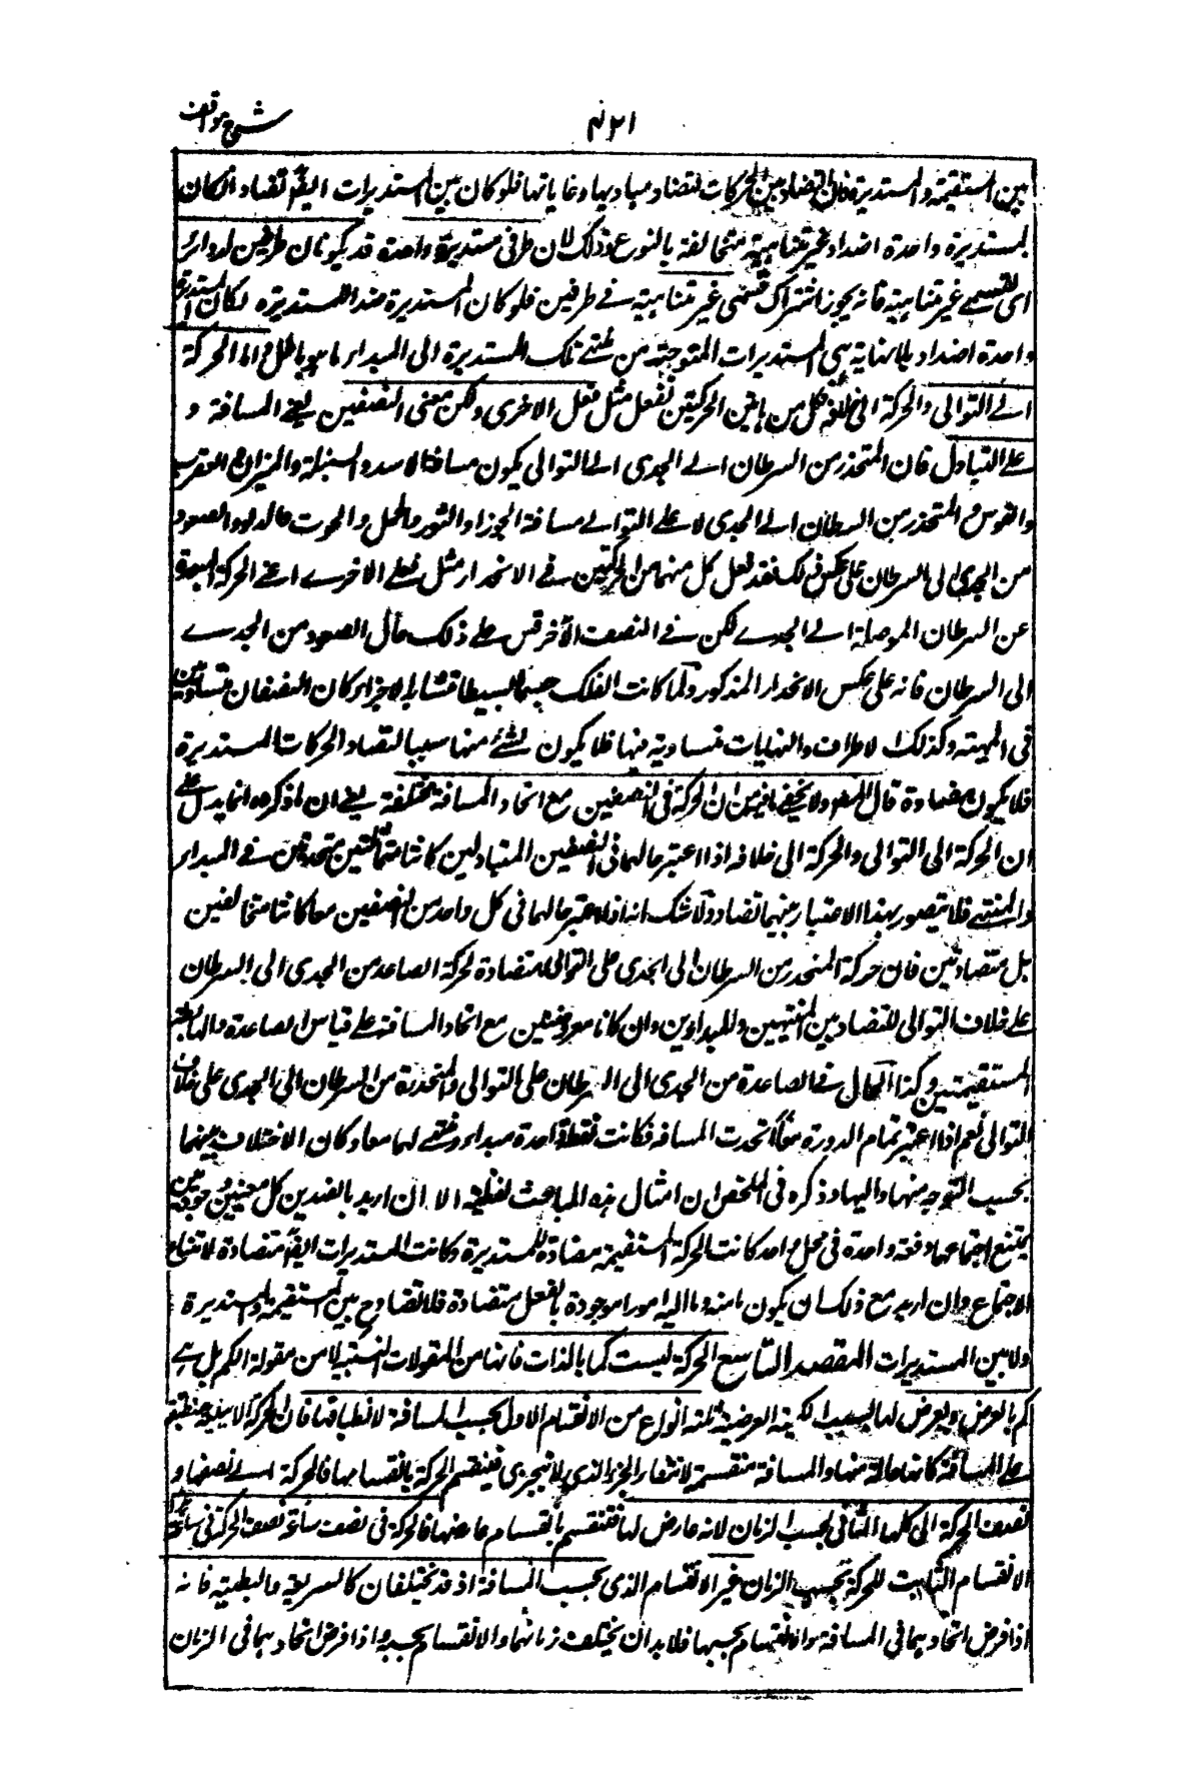 شرح مواقف
٤٢١
بين المستقيمة والمستديرة فان التضاد بين الحركات لتضاد مباديها وغاياتها فلو كان بين المستديرات ايضا تضاد لكان
لمستديرة واحدة اضداد غير متناهية متخالفة بالنوع وذلك لان طرفى مستديرة واحدة قد يكونان طرفين لدوائر
اى لقسى غير متناهية فانه يجوز اشتراك قسى غير متناهية فى طرفين فلو كان المستديرة ضدا للمستديرة لكان المستديرة
واحدة اضداد بلا نهاية هى المستديرات المتوجهة من منتهى تلك المستديرة الى المبدأ ما هو باطل واما الحركة
الى التوالى والحركة الى خلافه فكل من هاتين الحركتين تفعل مثل فعل الاخرى ولكن معنى النصفين يعنى المسافة و
على التبادل فان المنحدر من السرطان الى الجدى الى التوالى يكون مسافتا الاسد والسنبلة والميزان والعقرب
والقوس والمنحدر من السرطان الى الجدى لا على التوالى مسافة الجوزاء والثور والحمل والحوت والدلو والصعود
من الجدى الى السرطان على عكس ذلك فقد فعل كل منهما من الحركتين فى الانحدار مثل فعل الاخرى اعنى الحركة المبعدة
عن السرطان الموصلة الى الجدى لكن فى النصف الآخر قس على ذلك حال الصعود من الجدى
الى السرطان فانه على عكس الانحدار المذكور ولما كانت الفلك جسما بسيطا متشابه الاجزاء كان النصفان متساويين
فى المهية وكذلك الاطراف والنهايات متساوية منها فلا يكون لشئ منها سببا لتضاد الحركات المستديرة
فلا يكون مضادة قال المصنف ولا يخفى ما فيه من ان الحركة فى النصفين مع اتحاد المسافة مختلفة يعنى ان ما ذكره انما يدل على
ان الحركة الى التوالى والحركة الى خلافه اذا اعتبر حالهما فى النصفين المتبادلين كانتا متماثلتين متحدتين فى المبدأ
والمنتهى فلا يتصور بهذا الاعتبار بينهما تضاد ولا شك انه اذا اعتبر حالهما فى كل واحد من النصفين معا كانتا متخالفين
بل متضادتين فان حركة المنحدر من السرطان الى الجدى على التوالى متضادة لحركة الصاعد من الجدى الى السرطان
على خلاف التوالى للتضاد بين المنتهيين والمبداوين وان كانا معروضين مع اتحاد المسافة على قياس الصاعدة والهابطة
المستقيمتين وكذا الحال فى الصاعدة من الجدى الى السرطان على التوالى والمنحدرة من السرطان الى الجدى على خلاف
التوالى نعم اذا اعتبر تمام الدورة معا اتحدت المسافة فكانت نقطة واحدة مبداء ومنتهى لهما معا وكان الاختلاف بينهما
بحسب التوجه منها واليها وذكره فى الملخص ان امثال هذه المباحث لفظية الا ان اريد بالضدين كل معنيين وجوديين
يمتنع اجتماعهما دفعة واحدة فى محل واحد كانت الحركة المستقيمة مضادة للمستديرة وكانت المستديرات ايضا متضادة لامتناع
الاجتماع وان اريد مع ذلك ان يكون ما منه وما اليه امورا موجودة بالفعل متضادة فلا تضاد ح بين المستقيمة والمستديرة
ولا بين المستديرات المقصد التاسع الحركة ليست كما بالذات فانها من المقولات النسبية لا من مقولة الكم بل هى
كم بالعرض ويعرض لها بسبب الكمية العرضية ثلثة انواع من الانقسام الاول بحسب المسافة لانطباقها فان الحركة الاينية منطبقة
على المسافة كانها حالة منها والمسافة منقسمة لانتفاء الجزء الذى لا يتجزى فينقسم الحركة بانقسامها فالحركة الى نصفها و
نصف الحركة الى كلها الثانى بحسب الزمان لانه عارض لها فتنقسم بانقسام عارضها فالحركة فى نصف ساعة نصف الحركة فى ساعة
الانقسام الثابت للحركة بحسب الزمان غير الانقسام الذى بحسب المسافة اذ قد تختلفان كالسريعة والبطيئة فانه
اذا فرض اتحادهما فى المسافة والانقسام بحسبها فلا بد ان يختلف زمانهما والانقسام بحسبه واذا فرض اتحادهما فى الزمان